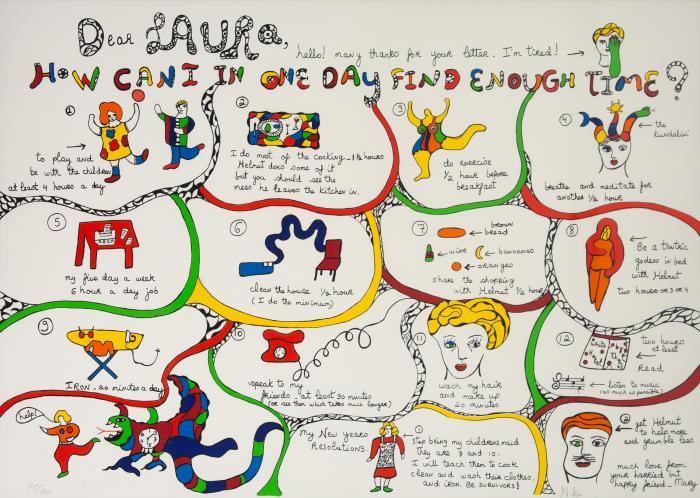 Dear LAURA,
hello! many thanks for your letter. I'm tired!
HOW CAN I IN ONE DAY FIND ENOUGH TIME?
1
to play and
be with the children
at least 4 hours a day
2
I do most of the cooking - 1 1/2 hours
Helmut does some of it
but you should see the
mess he leaves the kitchen in.
3
do exercise
1/2 hour before
breakfast
4
the
Kundalini
breathe and meditate for
another 1/2 hour
5
my five day a week
6 hour a day job
6
clean the house 1/2 hour
(I do the minimum)
7
brown
bread
wine
bananas
oranges
share the shopping
with Helmut 1/2 hour
8
Be a tantric
godess in bed
with Helmut
two hours or 3 or 4
9
IRON - 20 minutes a day
10
speak to my
friends - at least 30 minutes
(or see them which takes much longer)
11
wash my hair
and make up
20 minutes
12
two hours
at least
Read
listen to music
(as much as possible)
help!
my New years
Resolutions:
1
Stop being my childrens maid
They are 8 and 10.
I will teach them to cook
clean and wash their clothes,
and iron. BE SURVIVORS!
2
get Helmut
to help more
and grumble less
much love from
your harried but
happy friend - Mary
Niki